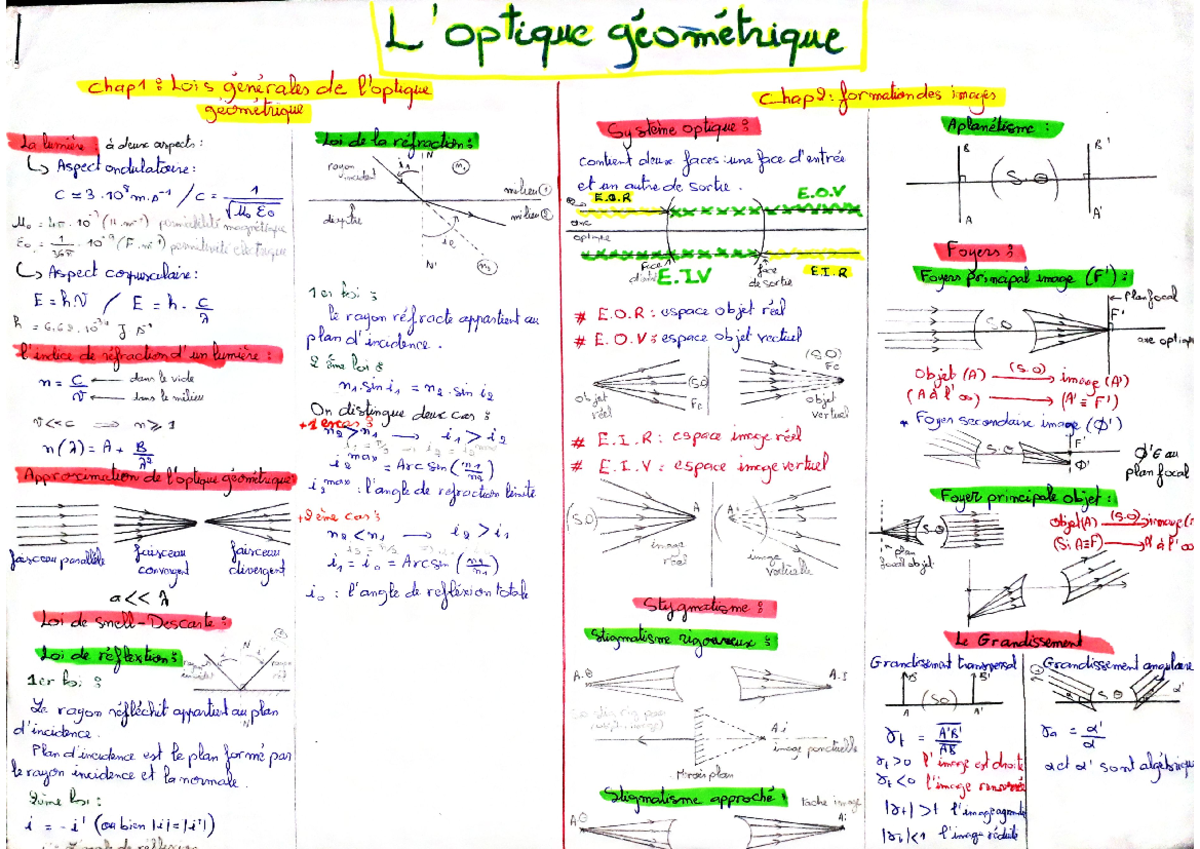 L'optique géométrique
Chap1 : Lois générales de l'optique
géométrique
La lumière : à deux aspects :
↳ Aspect ondulatoire :
C ≃ 3 . 10⁸ m.s⁻¹ / C = 1/√(μ₀ ε₀)
μ₀ = 4π . 10⁻⁷ (H.m⁻¹) perméabilité magnétique
ε₀ = 1/36π . 10⁻⁹ (F.m⁻¹) permittivité électrique
↳ Aspect corpusculaire :
E = h.ν / E = h . C/λ
l'indice de réfraction d'un lumière :
n = C/v ← dans le vide
← dans le milieu
v << c ⟹ n ≥ 1
n(λ) = A + B/λ²
Approximation de l'optique géométrique
faisceau parallèle
faisceau convergent
faisceau divergent
a << λ
Loi de snell-Descarte :
Loi de réflextion :
N
1er loi :
Le rayon réfléchit appartient au plan
d'incidence.
Plan d'incidence est le plan formé par
le rayon incidence et la normale.
2ème loi :
i = -i' (ou bien |i| = |i'|)
Loi de la réfraction :
rayon incident
i₁
N
n₁
milieu ①
milieu ②
dioptre
i₂
N'
n₂
1er loi :
le rayon réfracte appartient au
plan d'incidence.
2 ème loi :
n₁.sin i₁ = n₂.sin i₂
On distingue deux cas :
+1er cas :
n₂ > n₁ → i₁ > i₂
i₂max = Arcsin (n₁/n₂)
i₂max : l'angle de réfraction limite
+2ème cas :
n₂ < n₁ → i₂ > i₁
i₁ = i₀ = Arcsin (n₂/n₁)
i₀ : l'angle de reflexion totale
Chap2 : formation des images
Système optique :
contient deux faces : une face d'entrée
et un autre de sortie.
E.O.R
E.O.V
axe
optique
face
E.I.V
face
de sortie
E.I.R
# E.O.R : espace objet réel
# E.O.V : espace objet vertuel
objet réel
(S.O)
Fc
(S.O)
Fc
objet vertuel
# E.I.R : espace image réel
# E.I.V : espace image vertuel
(S.O)
A
image réel
A
image vertuelle
Stygmatisme :
Stigmatisme rigoureux :
A.O
A.I
A.i
image ponctuelle
Miroir plan
Stigmatisme approché :
tâche image
AO
Ai
Aplanétisme :
B
B'
(S.O)
A
A'
Foyers :
Foyers principal image (F') :
Plan focal
F'
S.O
axe optique
Objet (A) —(S.O)→ image (A')
(A à l'∞) → (A' ≡ F')
* Foyer secondaire image (ϕ')
F'
S.O
ϕ'
ϕ' ∈ au
plan focal
Foyer principale objet :
S.O
plan
focal objet
Objet(A) —(S.O)→ image
(Si A≡F) → A' à l'∞
Le Grandissement
Grandissement transversal
B
B'
(SO)
A
A'
γt = A'B'/AB
γt > 0 l'image est droite
γt < 0 l'image renversée
|γt| > 1 l'image agrandie
|γt| < 1 l'image réduite
Grandissement angulaire
α
S.O
α'
γa = α'/α
α et α' sont algébrique